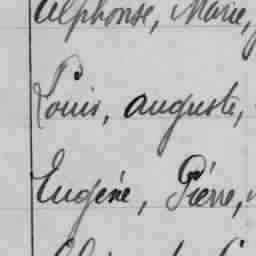 Alphonse, Marie,
Louis, Auguste,
Eugène, Pierre,